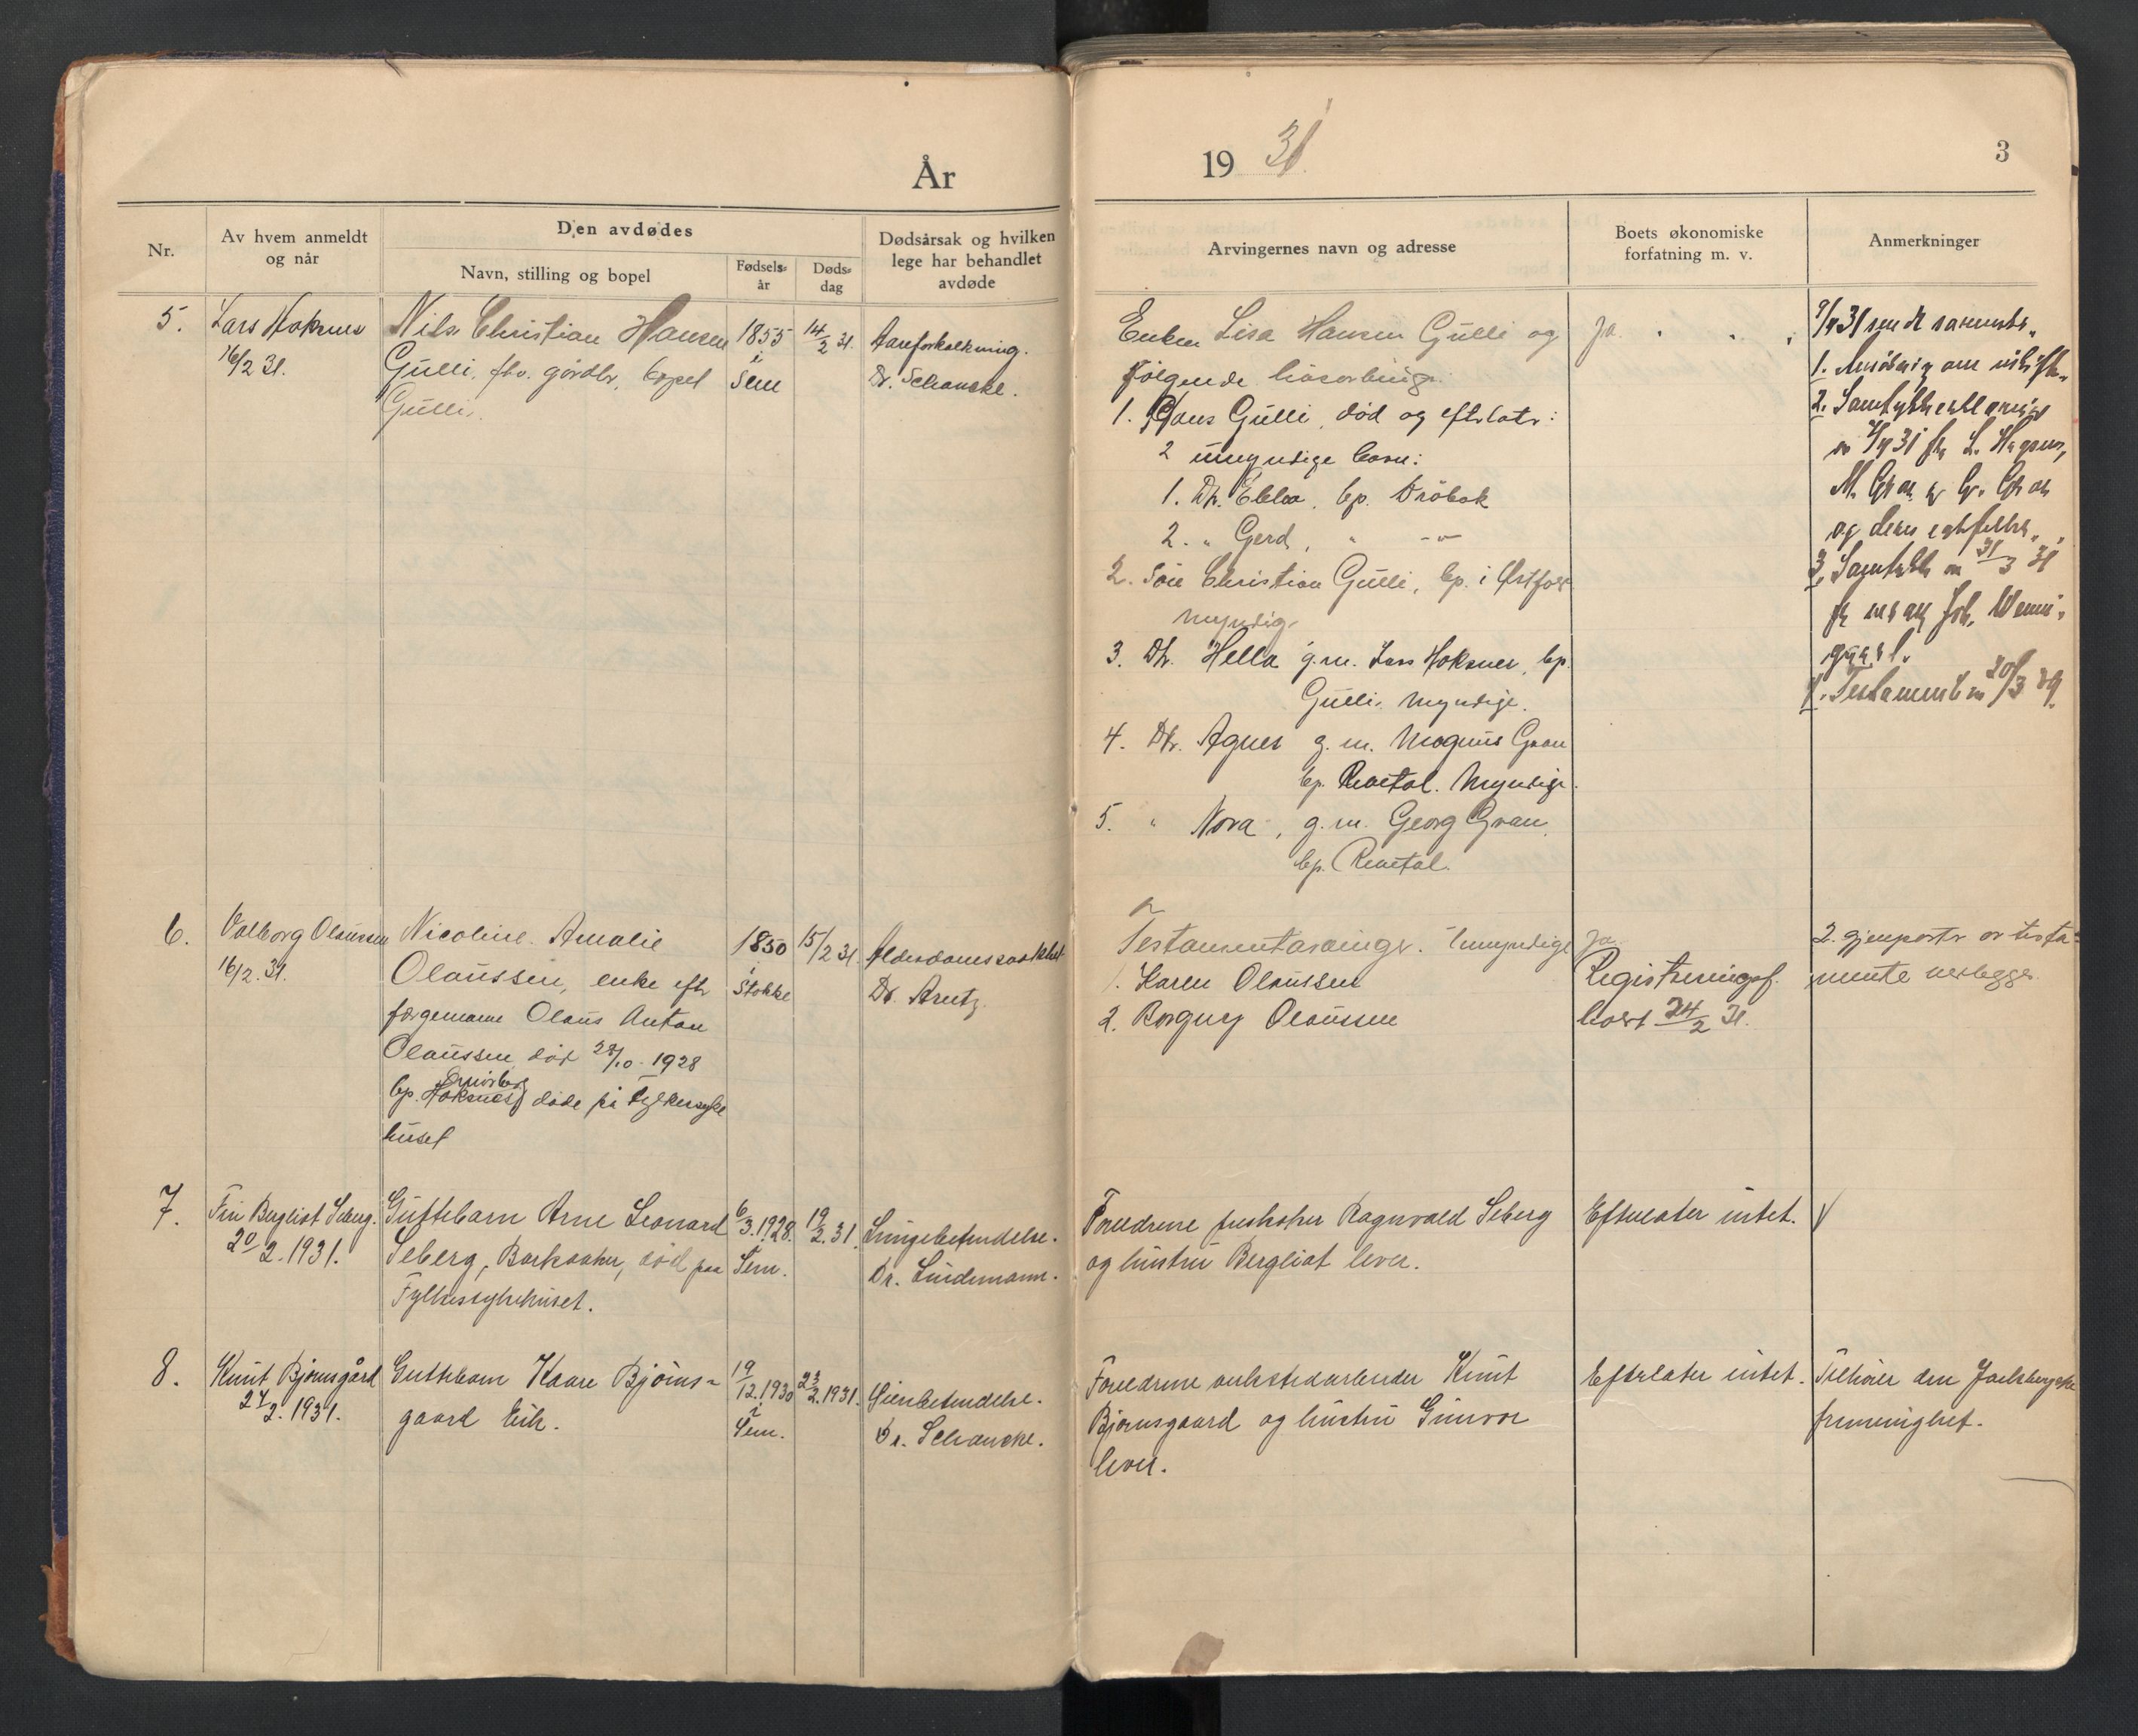 År
19 31.
3
Nr.
Av hvem anmeldt
og når
Den avdødes
Navn, stilling og bopel
Fødsels-
år
Døds-
dag
Dødsårsak og hvilken
lege har behandlet
avdøde
Arvingernes navn og adresse
Boets økonomiske
forfatning m. v.
Anmerkninger
5.
Lars Hoksnes
16/2 31.
Nils Christian Hansen
Gulli, fhv. gårdbr, bopel
Gulli.
1855
i
Sem
14/2 31.
Aareforkalkning.
Dr. Schancke.
Enken Lisa Hansen Gulli og
følgende livsarvinger
1. Hans Gulli, død og efterlater:
2 umyndige barn:
1. Dtr. Ebba, bp. Drøbak
2. " Gerd, " -"-
2. Søn Christian Gulli, bp. i Østfold
Myndig.
3. Dtr. Hella g.m. Lars Hoksnes, bp.
Gulli. Myndige.
4. Dtr. Agnes g. m. Magnus Gran
bp. Revetal. Myndige.
5. " Nora, g. m. Georg Gran,
bp. Revetal.
Ja.
og deres
3. 31/3 31
4. Testament 20/3 29.
6.
Valborg Olaussen
16/2. 31.
Nicoline Amalie
Olaussen, enke eft
færgemann Olaus Anton
Olaussen død 28/10 - 1928
bp. Hoksnes døde på Fylkessyke
huset
1850
i
Stokke
15/2 31.
Alderdomssvakhet
Dr. Arentz.
Testamentarvinger. Umyndige
1. Karen Olaussen
2. Olaussen
Ja.
Registreringsf.
holdt 24/2 31.
2. gjenparter av testa-
mente vedlegges.
7.
Fru Bergliot Seberg.
20/2. 1931.
Guttebarn Arne Leonard
Seberg, Barkaaker, død paa
Fylkessykehuset.
6/3. 1928.
Sem.
19/2. 31.
Lungebetendelse.
Dr. Lindemann.
Foreldrene Ragnvald Seberg
og hustru Bergliot lever.
Efterlater intet.
8.
Knut Bjørnsgård
24/2. 1931.
Guttebarn Kaare Bjørns-
gaard Eik.
19/12. 1930
i
Sem.
23/2. 1931.
Dr. Schancke.
Foreldrene verkstedarbeider Knut
Bjørnsgaard og hustru Gunvor
lever.
Efterlater intet.
Tilhører den Jarlsbergske
frimenighet.